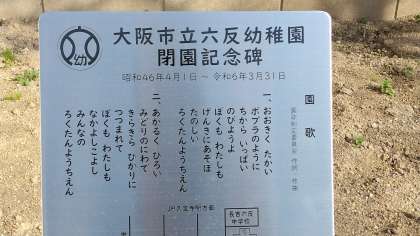 幼
大阪市立六反幼稚園
閉園記念碑
昭和46年4月1日 ～ 令和6年3月31日
園歌
一、おおきく たかい
ポプラのように
ちから いっぱい
のびようよ
ぼくも わたしも
げんきにあそぼ
たのしい
ろくたんようちえん
二、あかるく ひろい
みどりのにわで
きらきら ひかりに
つつまれて
ぼくも わたしも
なかよしこよし
みんなの
ろくたんようちえん
長吉六反
中学校